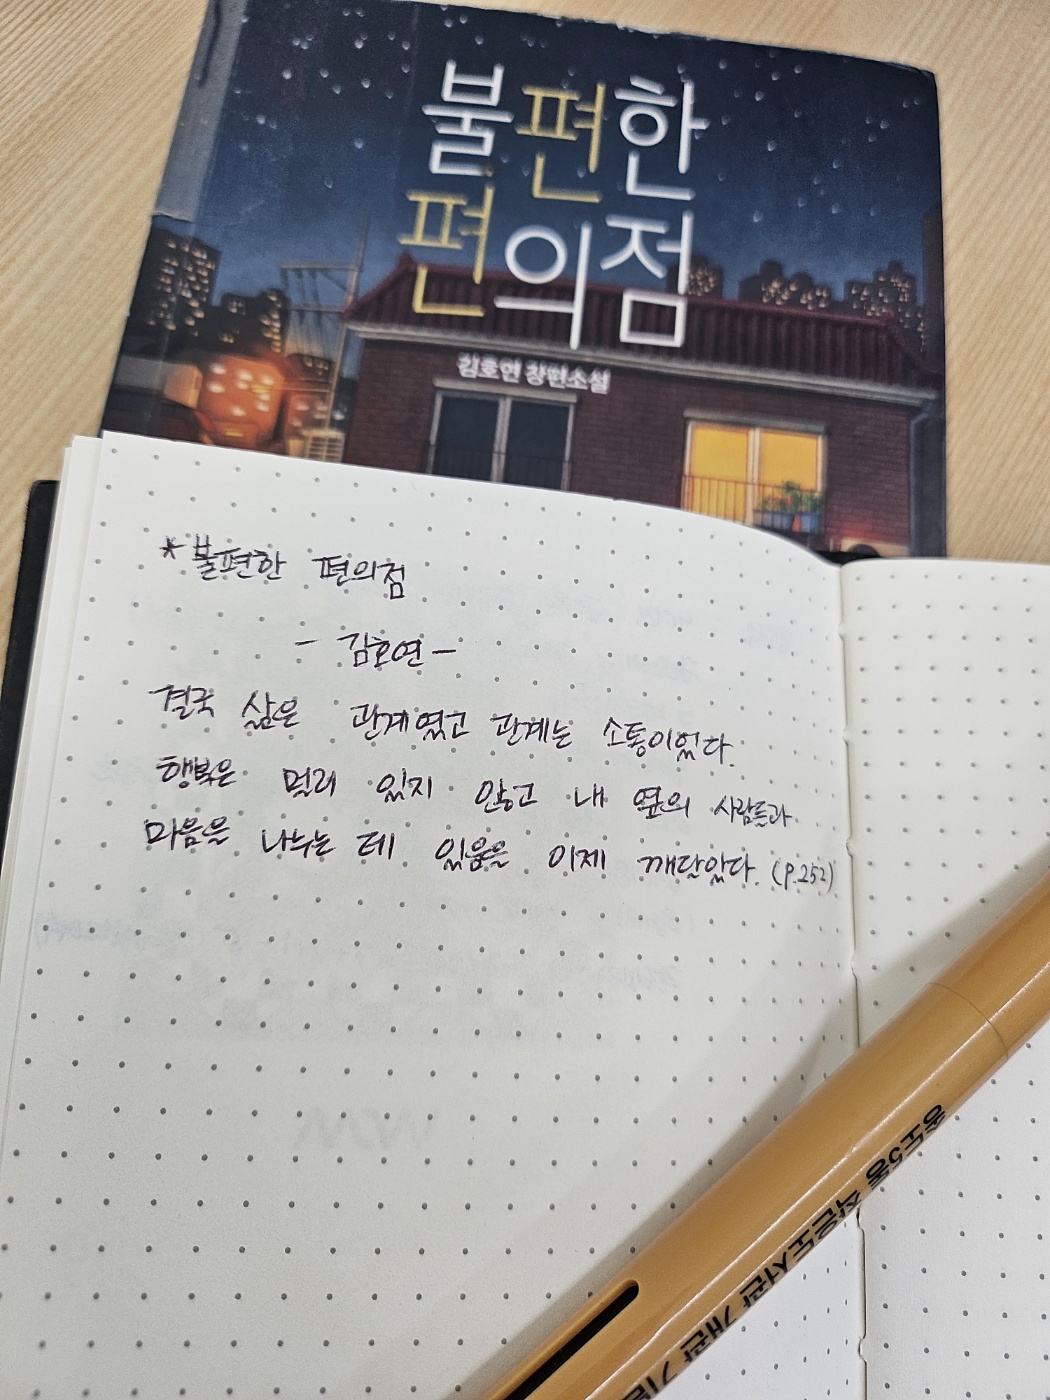 불편한
편의점
김호연 장편소설
*불편한 편의점
- 김호연 -
결국 삶은 관계였고 관계는 소통이었다.
행복은 멀리 있지 않고 내 옆의 사람들과
마음을 나누는 데 있음을 이제 깨달았다. (P.252)
송도5동 작은도서관 개관 기념